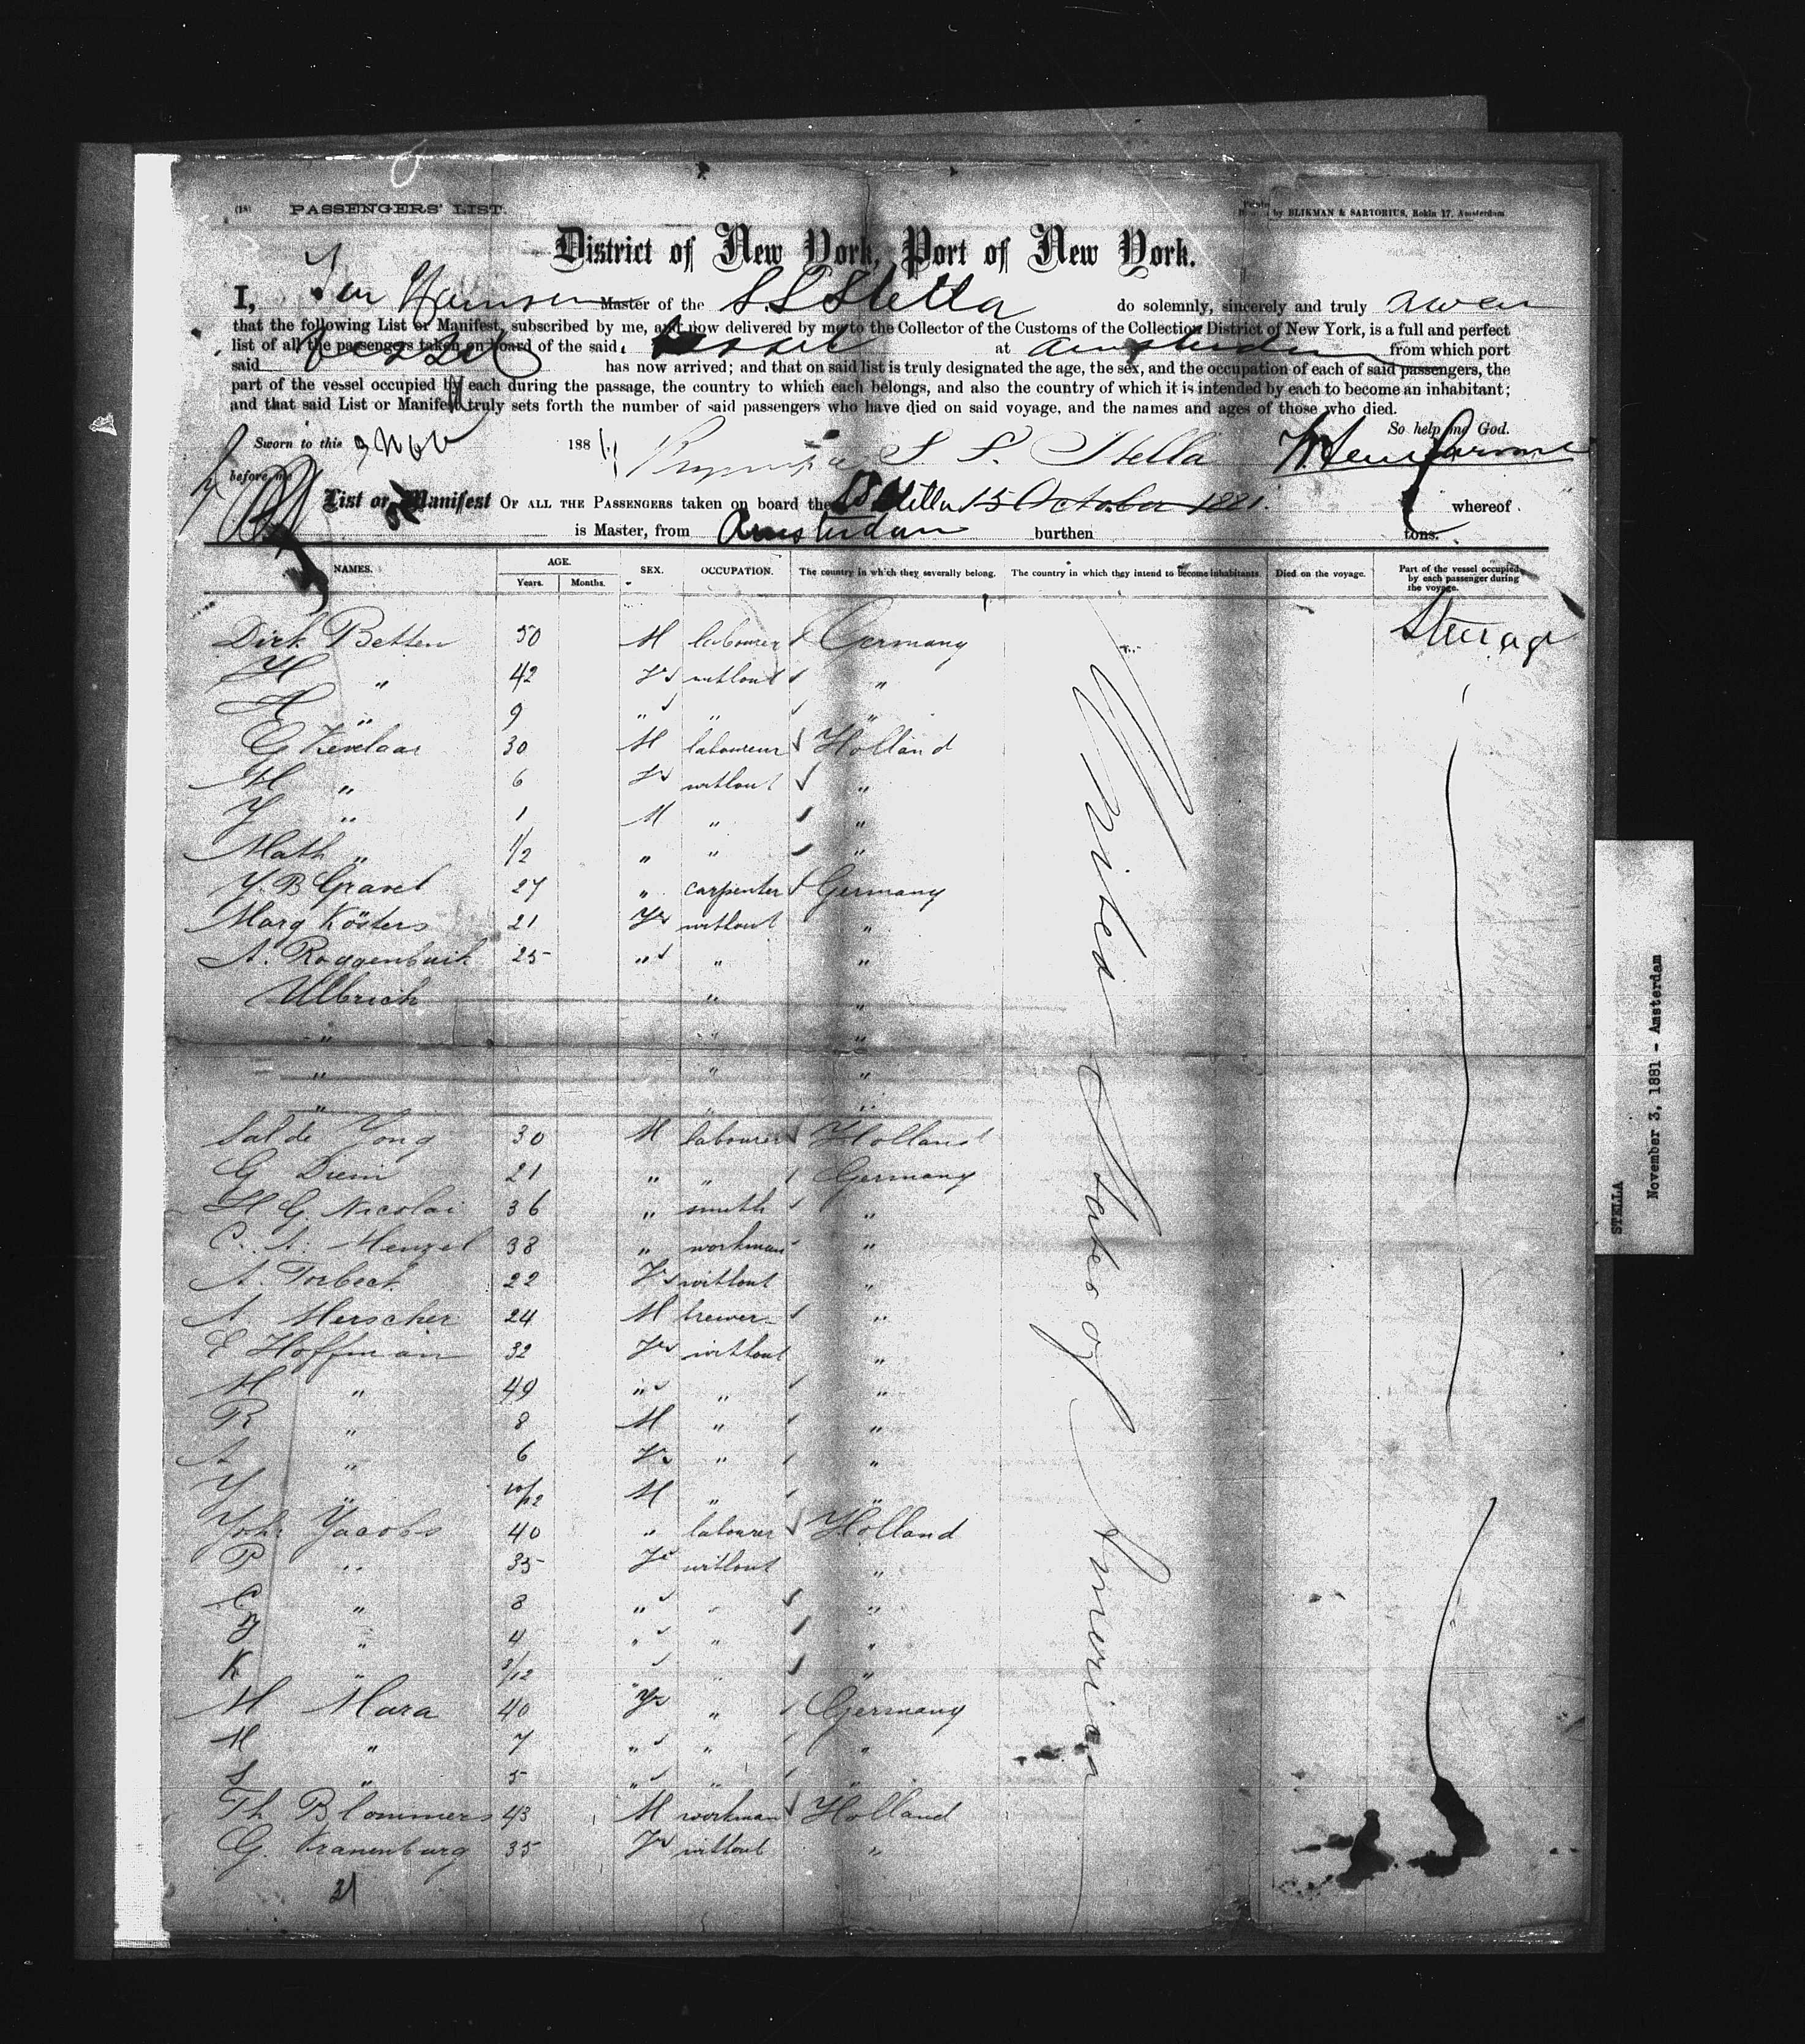 (18) PASSENGERS' LIST.
by BLIKMAN & SARTORIUS, Rokin 17, Amsterdam
District of New York, Port of New York.
I, Master of the S.S. Stella do solemnly, sincerely and truly swear
that the following List or Manifest, subscribed by me, and now delivered by me to the Collector of the Customs of the Collection District of New York, is a full and perfect
list of all the passengers taken on board of the said vessel at Amsterdam from which port
said vessel has now arrived; and that on said list is truly designated the age, the sex, and the occupation of each of said passengers, the
part of the vessel occupied by each during the passage, the country to which each belongs, and also the country of which it is intended by each to become an inhabitant;
and that said List or Manifest truly sets forth the number of said passengers who have died on said voyage, and the names and ages of those who died.
So help me God.
Sworn to this 3 Nov 1881 S. S. Stella
before me
List or Manifest OF ALL THE PASSENGERS taken on board the SS Stella 15 October 1881. whereof
is Master, from Amsterdam burthen tons.
NAMES. AGE. Years. Months. SEX. OCCUPATION. The country in which they severally belong. The country in which they intend to become inhabitants. Died on the voyage. Part of the vessel occupied by each passenger during the voyage.
Dirk Betten 50 M labourer Germany Steerage
H " 42 Vr without "
H " 9 " " "
G Kevelaar 30 M laboureur Holland
M " 6 Vr without "
Y " 1 M " "
Math " 1/2 " " "
Y. B Gravel 27 " carpenter Germany
Marg Kösters 21 Vr without "
A. Roggenbuik 25 " " "
Ullrich " "
" " "
" " "
" " "
Sal de Yong 30 M labourer Holland
G Diem 21 " " Germany
H G. Nicolai 36 " smith "
C. A. Menzel 38 " workman "
A. Torbeck 22 Vr without "
A Merscher 24 M brewer "
E Hoffman 32 Vr without "
M " 49 " " "
R " 8 M " "
A " 6 Vr " "
Y " 10/12 M " "
Joh. Yacobs 40 " labourer Holland
P " 35 Vr without "
C " 8 " " "
" 4 " " "
K " 3/12 " " "
M Mara 40 Vr " Germany
M " 7 " " "
S " 5 " " "
Th Blommers 43 M workman Holland
G. Kranenburg 35 Vr without "
31
United States of America
STELLA
November 3, 1881 - Amsterdam